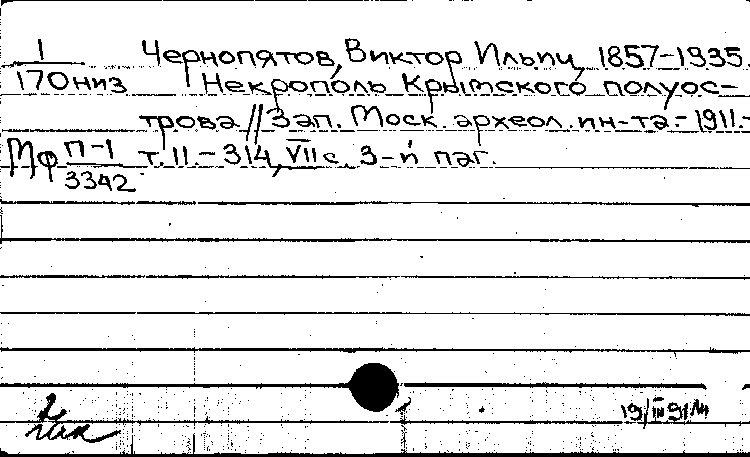 1 Чернопятов, Виктор Ильич, 1857-1935.
170 низ Некрополь Крымского полуос-
трова // Зап. Моск. археол. ин-та.- 1911.-
Мф П-1 т. 11.- 314, VII с. 3-й паг.
3342
19/III 91